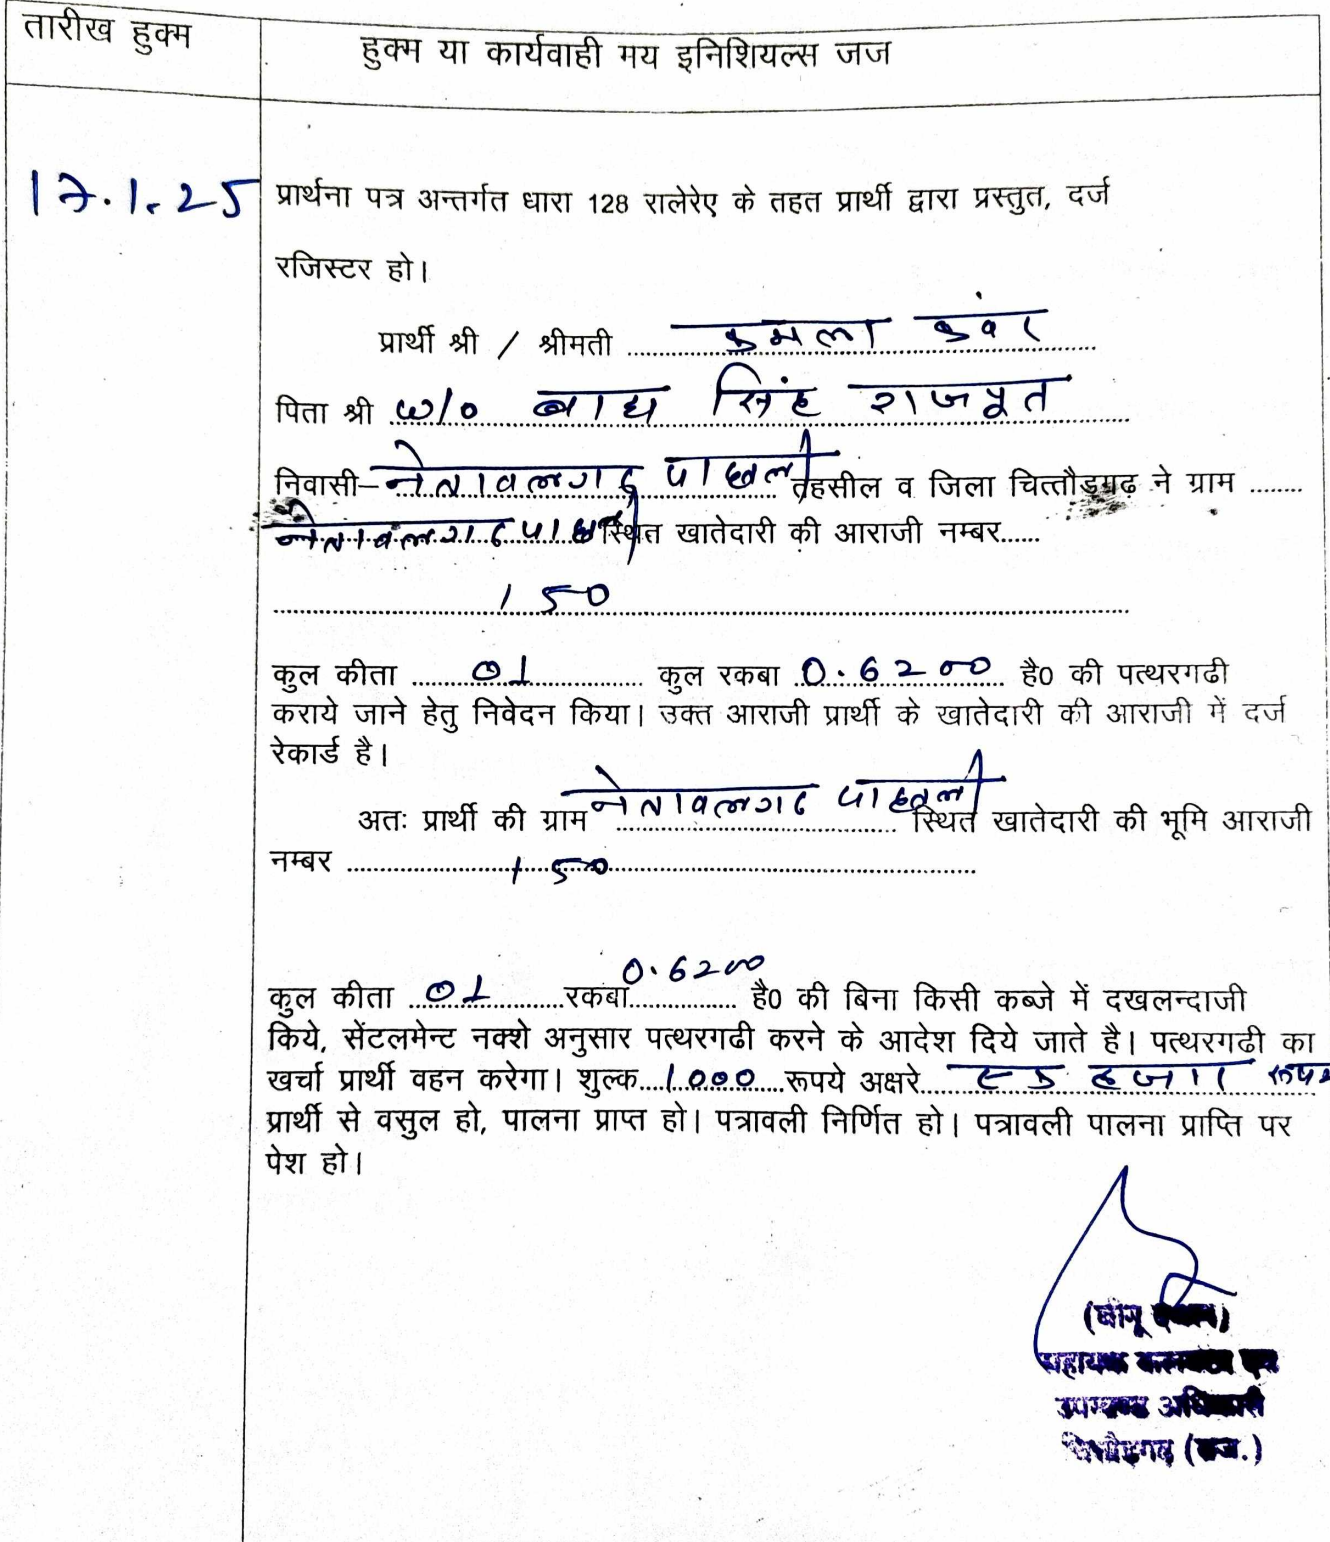 तारीख हुक्म
हुक्म या कार्यवाही मय इनिशियल्स जज
17.1.25
प्रार्थना पत्र अन्तर्गत धारा 128 रालेरेए के तहत प्रार्थी द्वारा प्रस्तुत, दर्ज
रजिस्टर हो।
प्रार्थी श्री / श्रीमती कमला कंवर
पिता श्री w/o बाघ सिंह राजपूत
निवासी- नेतावलगढ पाछली तहसील व जिला चित्तौड़गढ ने ग्राम ........
नेतावलगढ पाछली स्थित खातेदारी की आराजी नम्बर......
150
कुल कीता 01 कुल रकबा 0.6200 है0 की पत्थरगढी
कराये जाने हेतु निवेदन किया। उक्त आराजी प्रार्थी के खातेदारी की आराजी में दर्ज
रेकार्ड है।
अतः प्रार्थी की ग्राम नेतावलगढ पाछली स्थित खातेदारी की भूमि आराजी
नम्बर 150
कुल कीता 01 रकबा 0.6200 है0 की बिना किसी कब्जे में दखलन्दाजी
किये, सेंटलमेन्ट नक्शे अनुसार पत्थरगढी करने के आदेश दिये जाते है। पत्थरगढी का
खर्चा प्रार्थी वहन करेगा। शुल्क 1000 रूपये अक्षरे एक हजार रूपये
प्रार्थी से वसुल हो, पालना प्राप्त हो। पत्रावली निर्णित हो। पत्रावली पालना प्राप्ति पर
पेश हो।
सहायक कलक्टर एवं
उपखण्ड अधिकारी
चित्तौड़गढ़ (राज.)